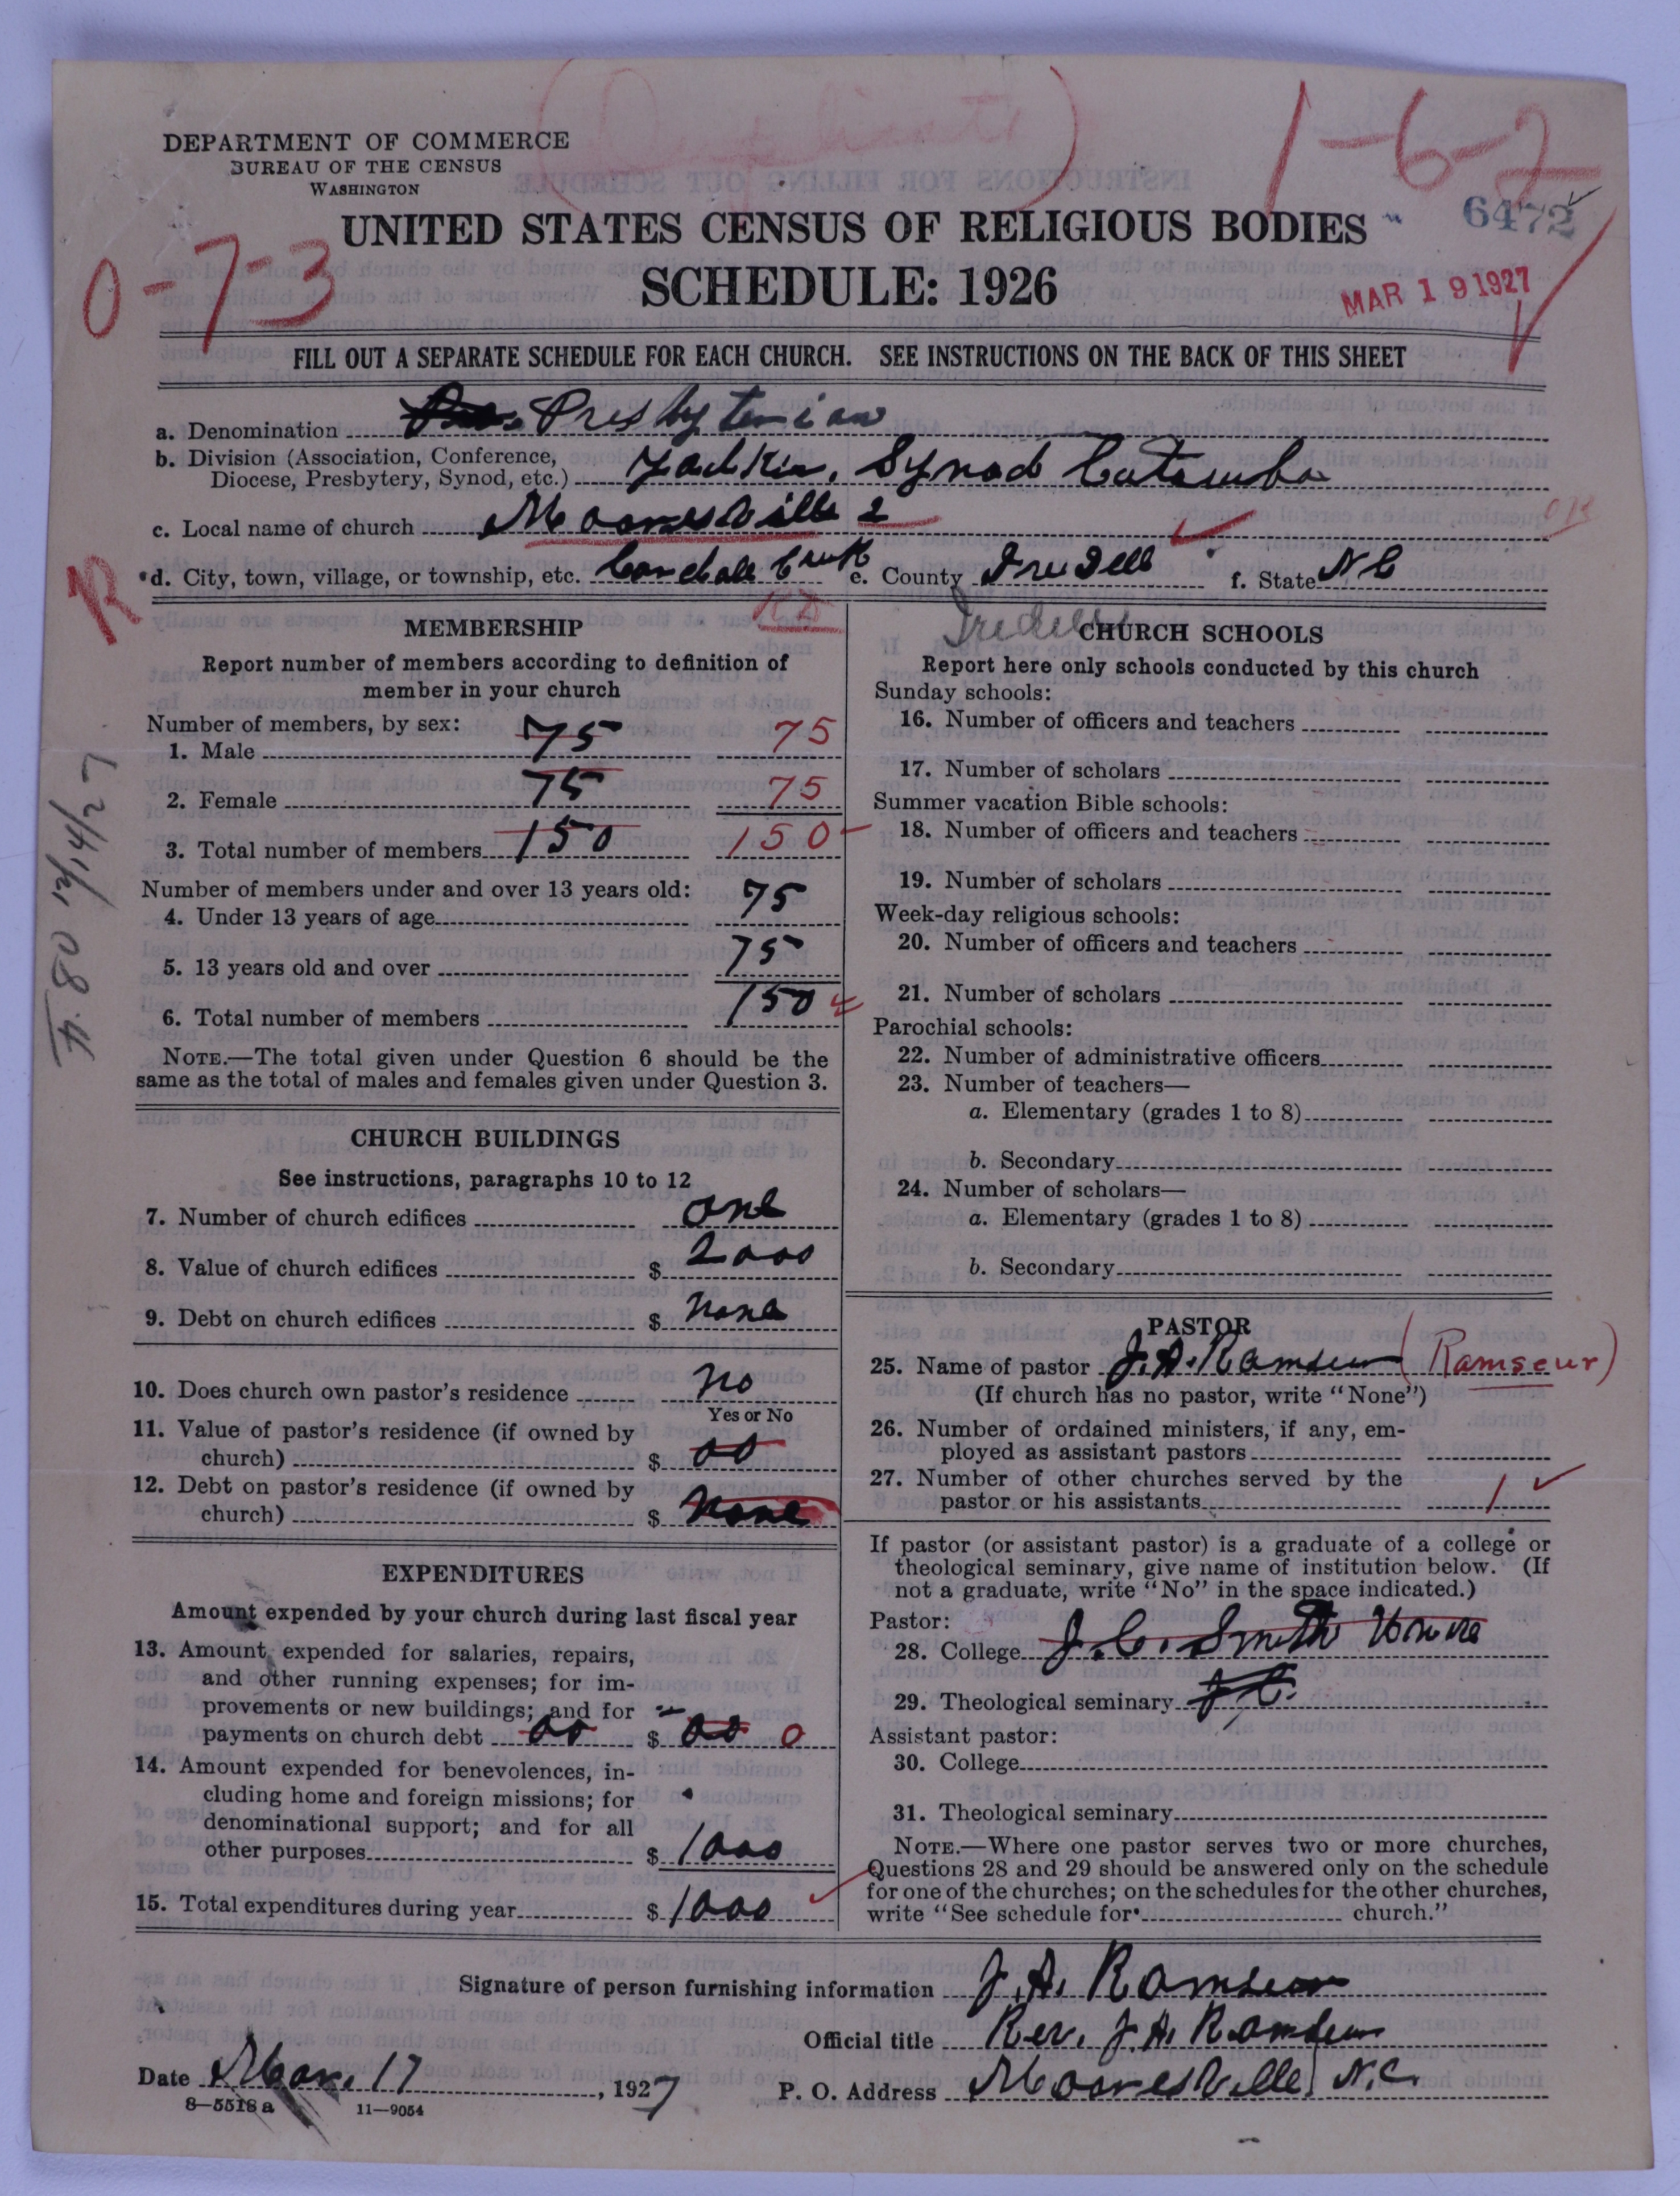 (Duplicate)
1-6-2
DEPARTMENT OF COMMERCE
BUREAU OF THE CENSUS
WASHINGTON
6472
UNITED STATES CENSUS OF RELIGIOUS BODIES
0-7-3
SCHEDULE: 1926
MAR 19 1927
FILL OUT A SEPARATE SCHEDULE FOR EACH CHURCH. SEE INSTRUCTIONS ON THE BACK OF THIS SHEET
a. Denomination Presbyterian
b. Division (Association, Conference,
Diocese, Presbytery, Synod, etc.) Yadkin, Synod Catawba
c. Local name of church Mooresville 2
OK
R
*d. City, town, village, or township, etc. Coddle Creek e. County Iredell f. State N C
Iredell
MEMBERSHIP
Report number of members according to definition of
member in your church
Number of members, by sex:
1. Male 75 75
2. Female 75 75
3. Total number of members 150 150
Number of members under and over 13 years old:
4. Under 13 years of age 75
5. 13 years old and over 75
6. Total number of members 150
NOTE.—The total given under Question 6 should be the
same as the total of males and females given under Question 3.
CHURCH BUILDINGS
See instructions, paragraphs 10 to 12
7. Number of church edifices one
8. Value of church edifices $ 2000
9. Debt on church edifices $ none
10. Does church own pastor's residence no
Yes or No
11. Value of pastor's residence (if owned by
church) $ 00
12. Debt on pastor's residence (if owned by
church) $ none
EXPENDITURES
Amount expended by your church during last fiscal year
13. Amount expended for salaries, repairs,
and other running expenses; for im-
provements or new buildings; and for
payments on church debt 00 $ 00 0
14. Amount expended for benevolences, in-
cluding home and foreign missions; for
denominational support; and for all
other purposes $ 1000
15. Total expenditures during year $ 1000
CHURCH SCHOOLS
Report here only schools conducted by this church
Sunday schools:
16. Number of officers and teachers
17. Number of scholars
Summer vacation Bible schools:
18. Number of officers and teachers
19. Number of scholars
Week-day religious schools:
20. Number of officers and teachers
21. Number of scholars
Parochial schools:
22. Number of administrative officers
23. Number of teachers—
a. Elementary (grades 1 to 8)
b. Secondary
24. Number of scholars—
a. Elementary (grades 1 to 8)
b. Secondary
PASTOR
25. Name of pastor J. A. Ramseur (Ramseur)
(If church has no pastor, write "None")
26. Number of ordained ministers, if any, em-
ployed as assistant pastors
27. Number of other churches served by the
pastor or his assistants 1
If pastor (or assistant pastor) is a graduate of a college or
theological seminary, give name of institution below. (If
not a graduate, write "No" in the space indicated.)
Pastor:
28. College J. C. Smith
29. Theological seminary J C.
Assistant pastor:
30. College
31. Theological seminary
NOTE.—Where one pastor serves two or more churches,
Questions 28 and 29 should be answered only on the schedule
for one of the churches; on the schedules for the other churches,
write "See schedule for church."
Signature of person furnishing information J. A. Ramseur
Official title Rev. J. A. Ramseur
Date Mar. 17, 1927
P. O. Address Mooresville, N. C.
8-5518 a 11-9054